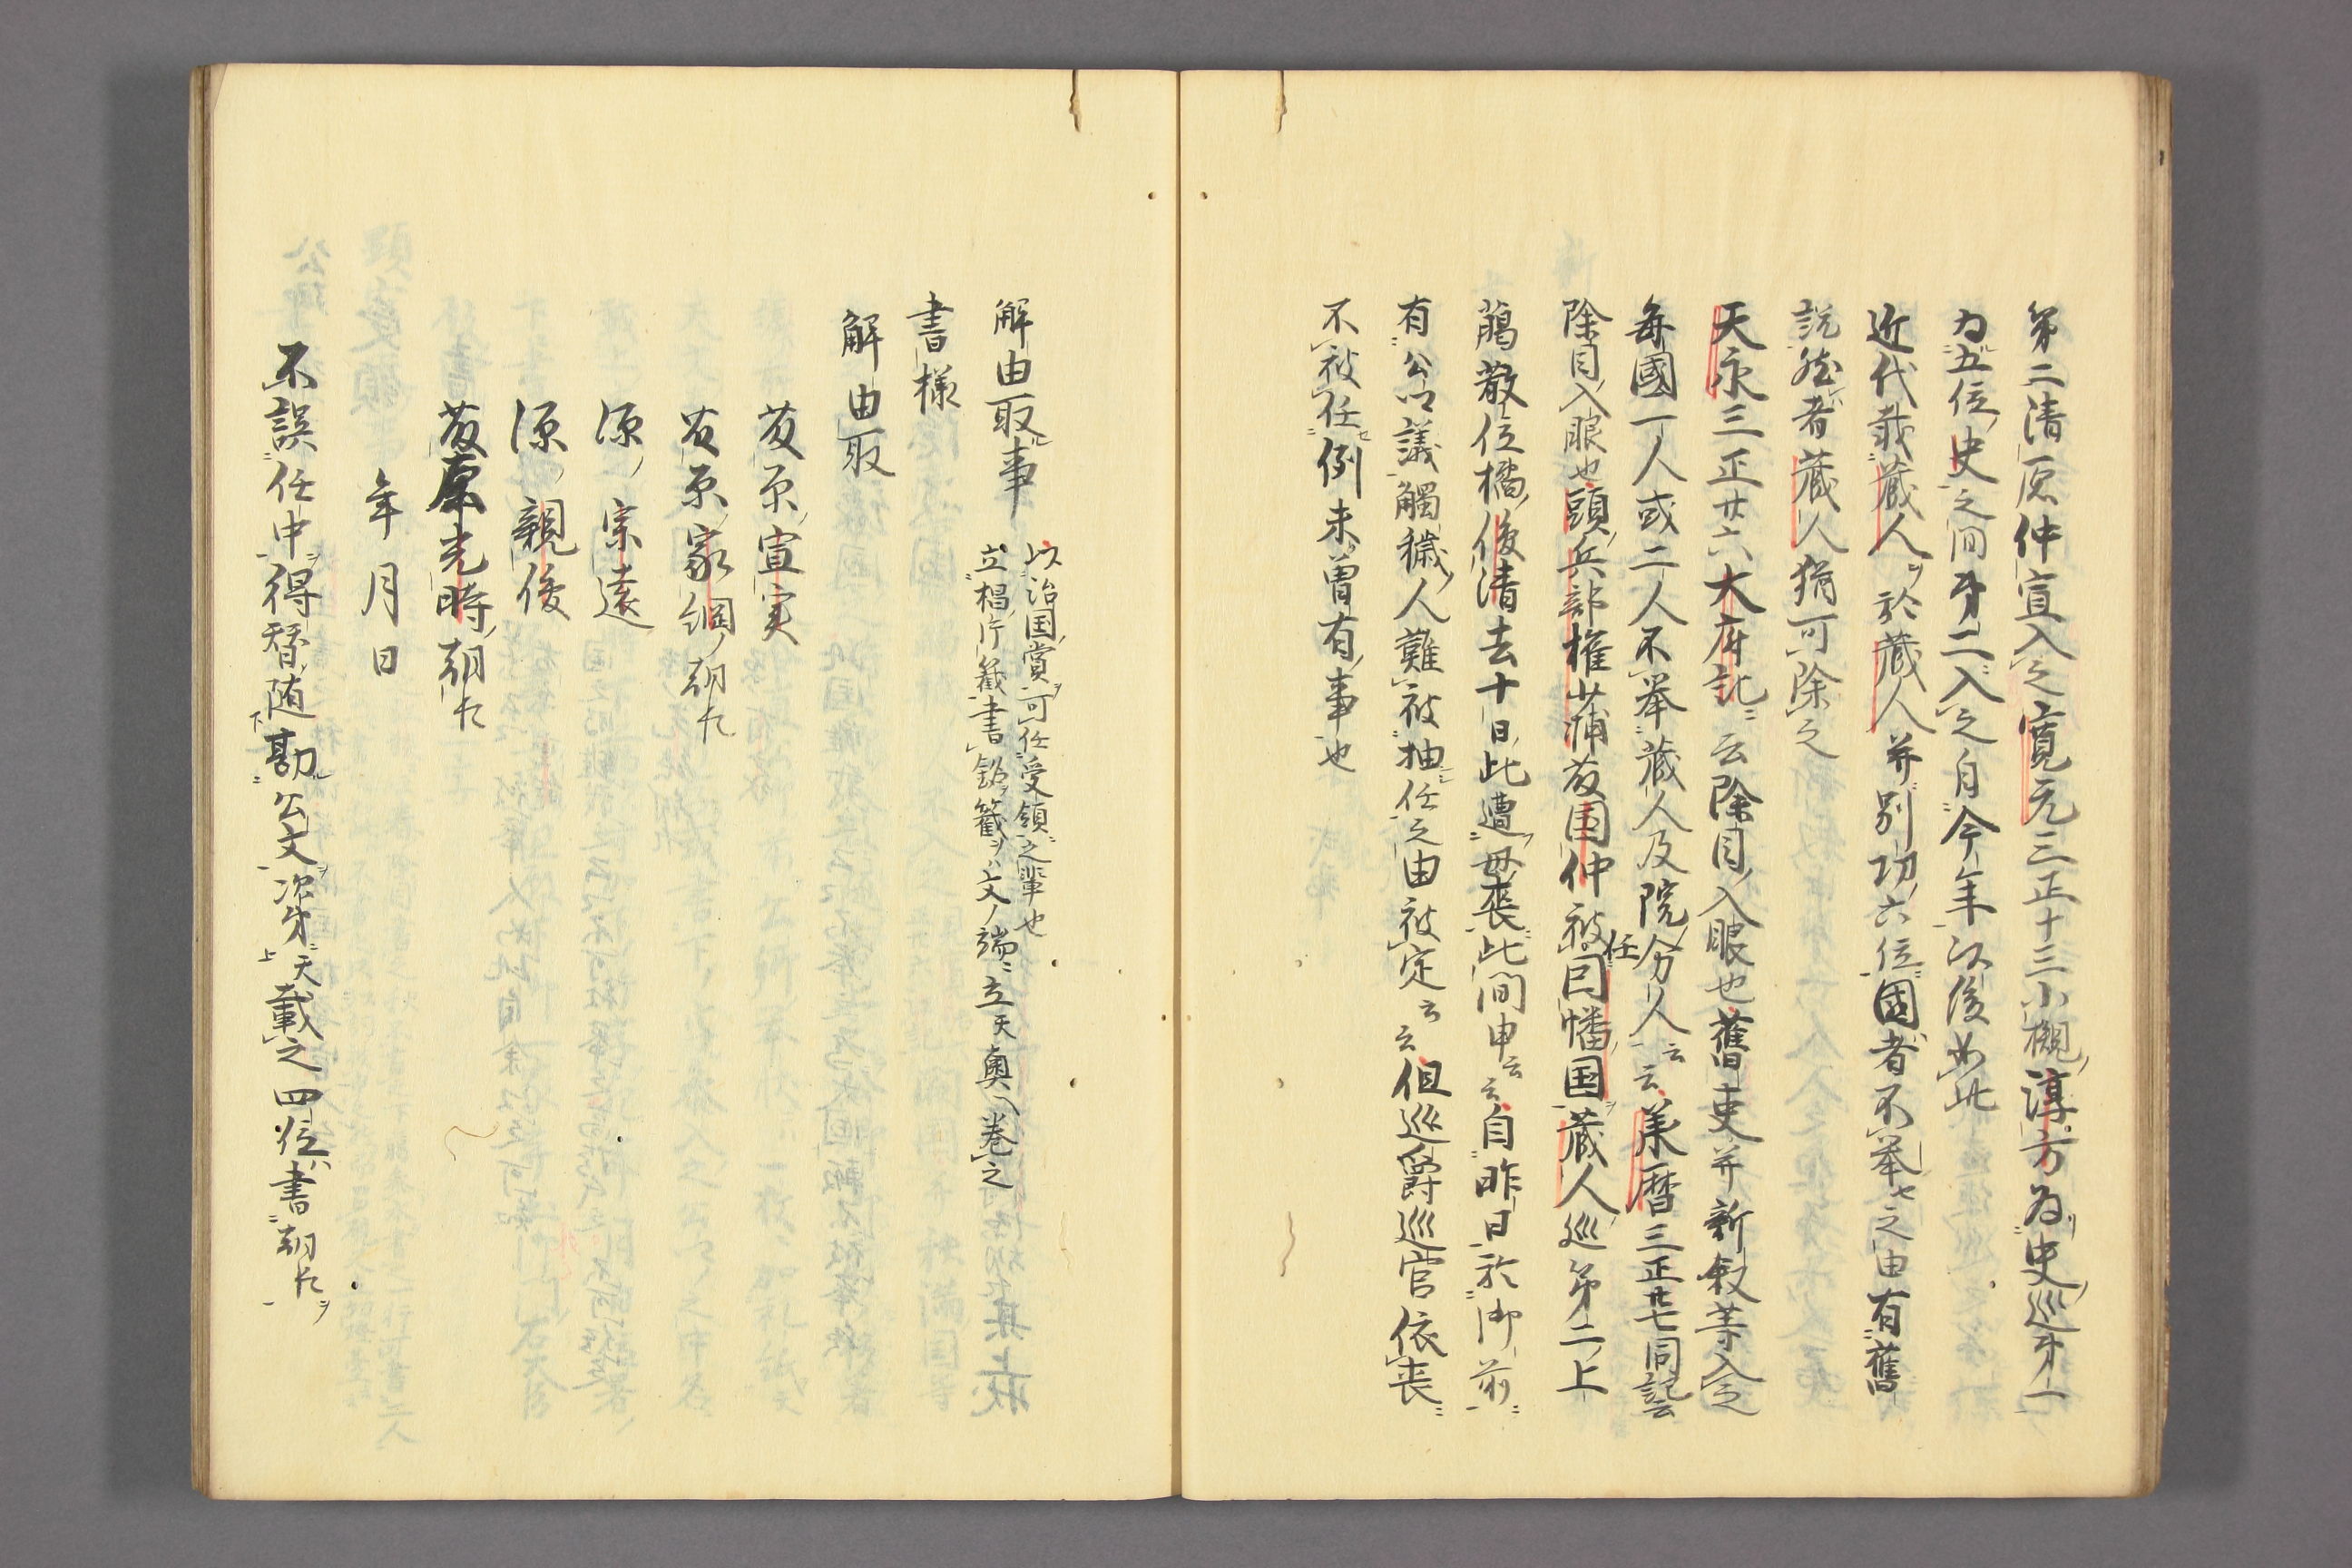 第二清原仲宣入之寛元三正十三小槻淳方為史巡第一
為五位史之間第二入之自今年以後如此
近代載蔵人於蔵人并別功六位國者不挙之由有舊
説然者蔵人猶可除之
天永三正廿六大府記云除目入眼也舊吏并新叙等入之
毎國一人或二人不挙蔵人及院分人云云 暦三正廿七同記云
除目入眼也頭兵部権 藤国仲被任因幡国蔵人巡第二上
臈散位橘俊清去十日此遭母喪此間申云云自昨日於御前
有公卿議觸穢人難被抽任之由被定云云但巡爵巡官依喪
不被任例未曽有事也
解由取事
以治国賞可任受領之輩也
立 籤書 籤ヲハ文ノ端ニ立天奥ヘ巻之
書様
解由取
藤原宣実
藤原家綱朝臣
源宗遠
源親俊
藤原光時朝臣
年月日
不誤任中得替随勘公文次第ニ天載之四位ハ書朝臣